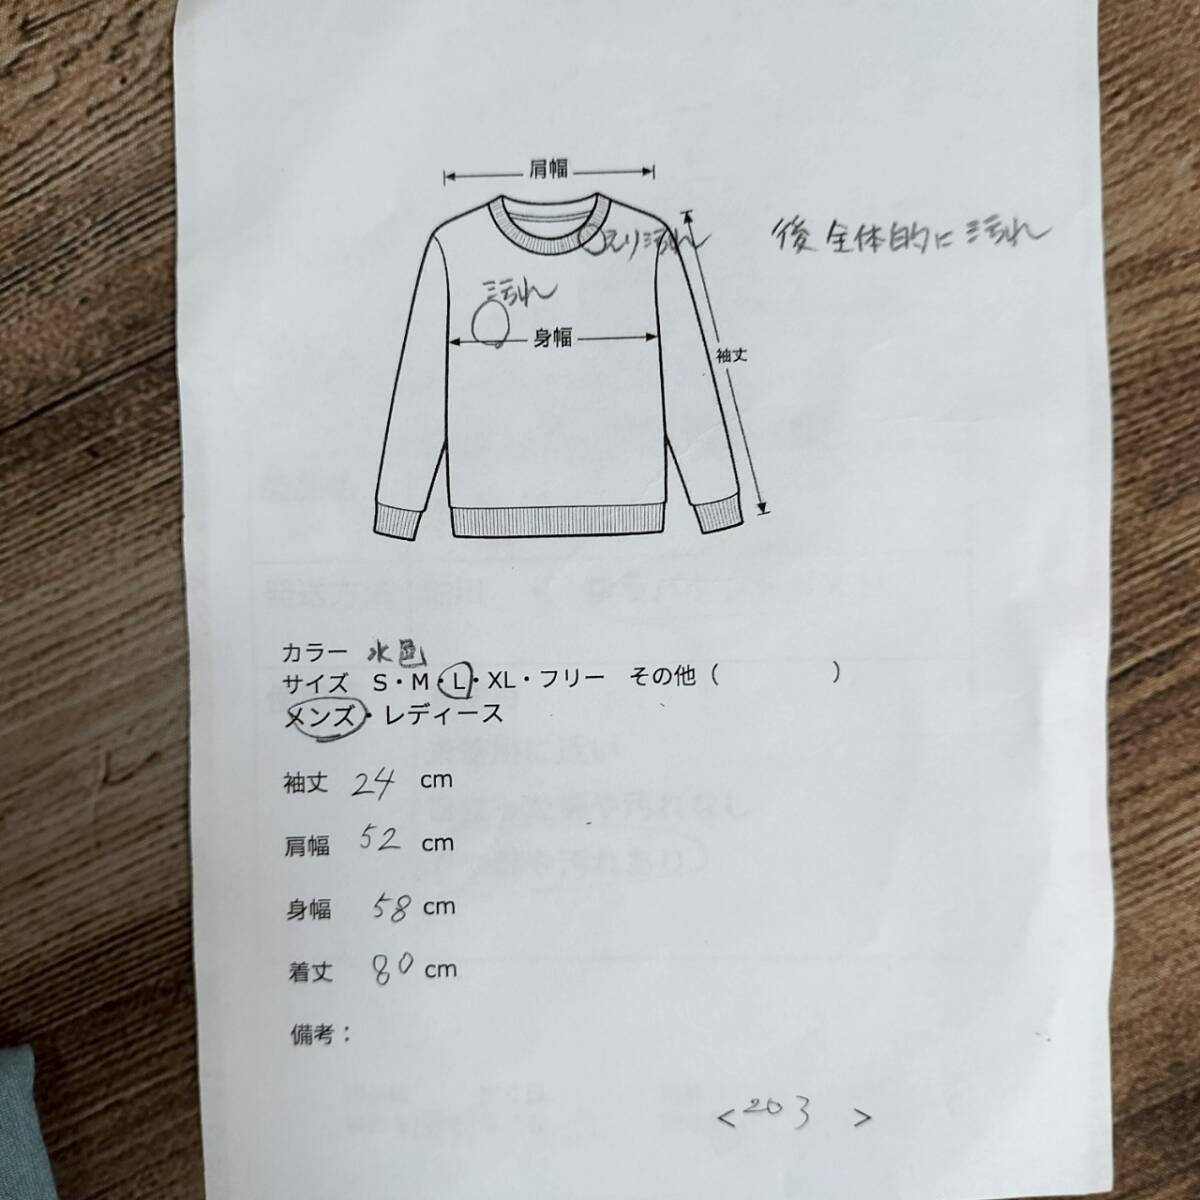 肩幅
えり汚れ
後 全体的に汚れ
汚れ
身幅
袖丈
カラー 水色
サイズ S・M・L・XL・フリー その他（ ）
メンズ・レディース
袖丈 24 cm
肩幅 52 cm
身幅 58 cm
着丈 80 cm
備考：
＜203＞